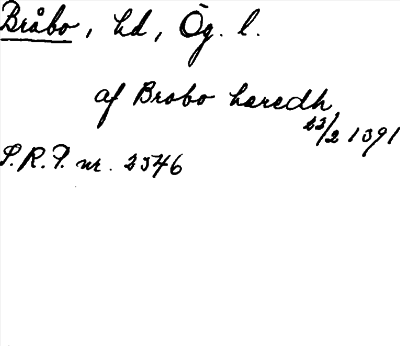 Bråbo, hd, Ög. l.
af Brobo hæredh
22/2 1391
S.R.P. nr. 2546